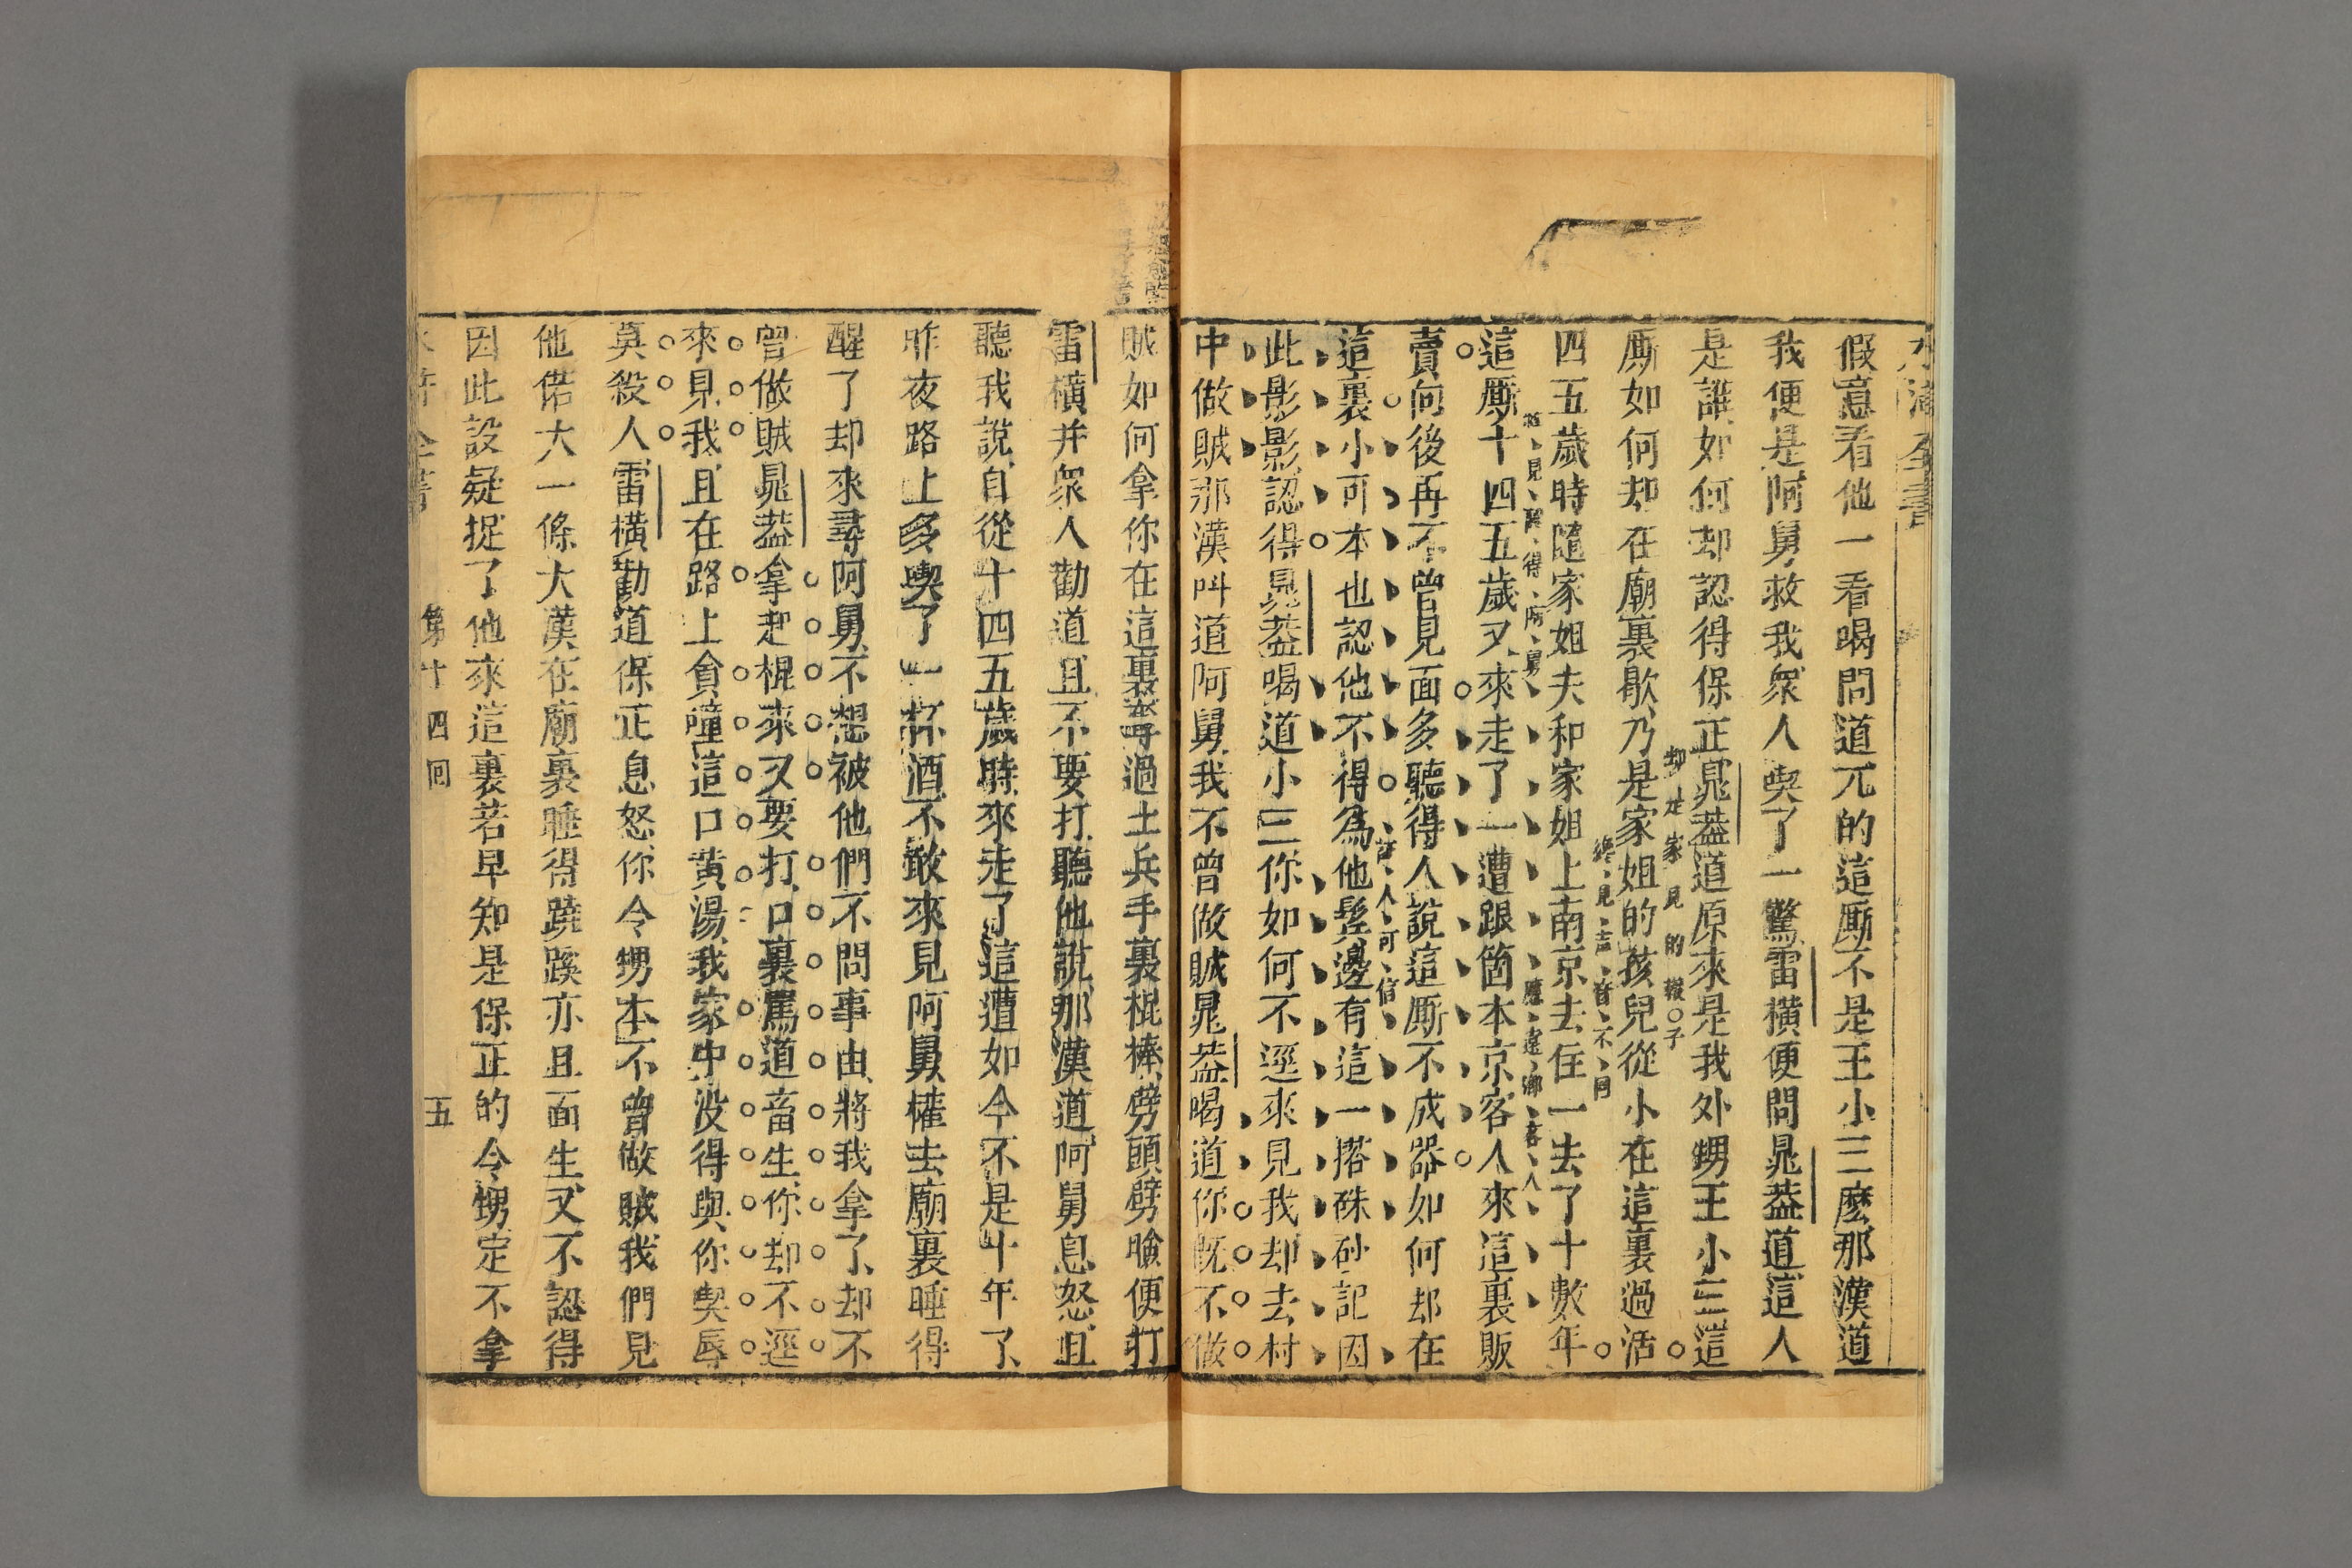 水滸全書
假意看他一看喝問道兀的這厮不是王小三麽那漢道
我便是阿舅救我衆人喫了一驚雷橫便問晁葢道這人
是誰如何却認得保正晁葢道原來是我外甥王小三這
却是家兄的報子
厮如何却在廟裏歇乃是家姐的孩兒從小在這裏過活
終見声音不同
四五歲時隨家姐夫和家姐上南京去住一去了十數年
這厮十四五歲又來走了一遭跟箇本京客人來這裏販
賣向後再不曾見面多聽得人說這厮不成器如何却在
這裏小可本也認他不得爲他髩邊有這一搭硃砂記因
此影影認得晁葢喝道小三你如何不逕來見我却去村
中做賊那漢叫道阿舅我不曾做賊晁葢喝道你旣不做
賊如何拿你在這裏奪過土兵手裏棍棒劈頭劈臉便打
雷橫并衆人勸道且不要打聽他說那漢道阿舅息怒且
聽我說自從十四五歲時來走了這遭如今不是十年了
昨夜路上多喫了一杯酒不敢來見阿舅權去廟裏睡得
醒了却來尋阿舅不想被他們不問事由將我拿了却不
曾做賊晁葢拿起棍來又要打口裏罵道畜生你却不逕
來見我且在路上貪噇這口黄湯我家中没得與你喫辱
莫殺人雷橫勸道保正息怒你令甥本不曾做賊我們見
他偌大一條大漢在廟裏睡得蹺蹊亦且面生又不認得
因此設疑捉了他來這裏若早知是保正的令甥定不拿
第十四囘
五